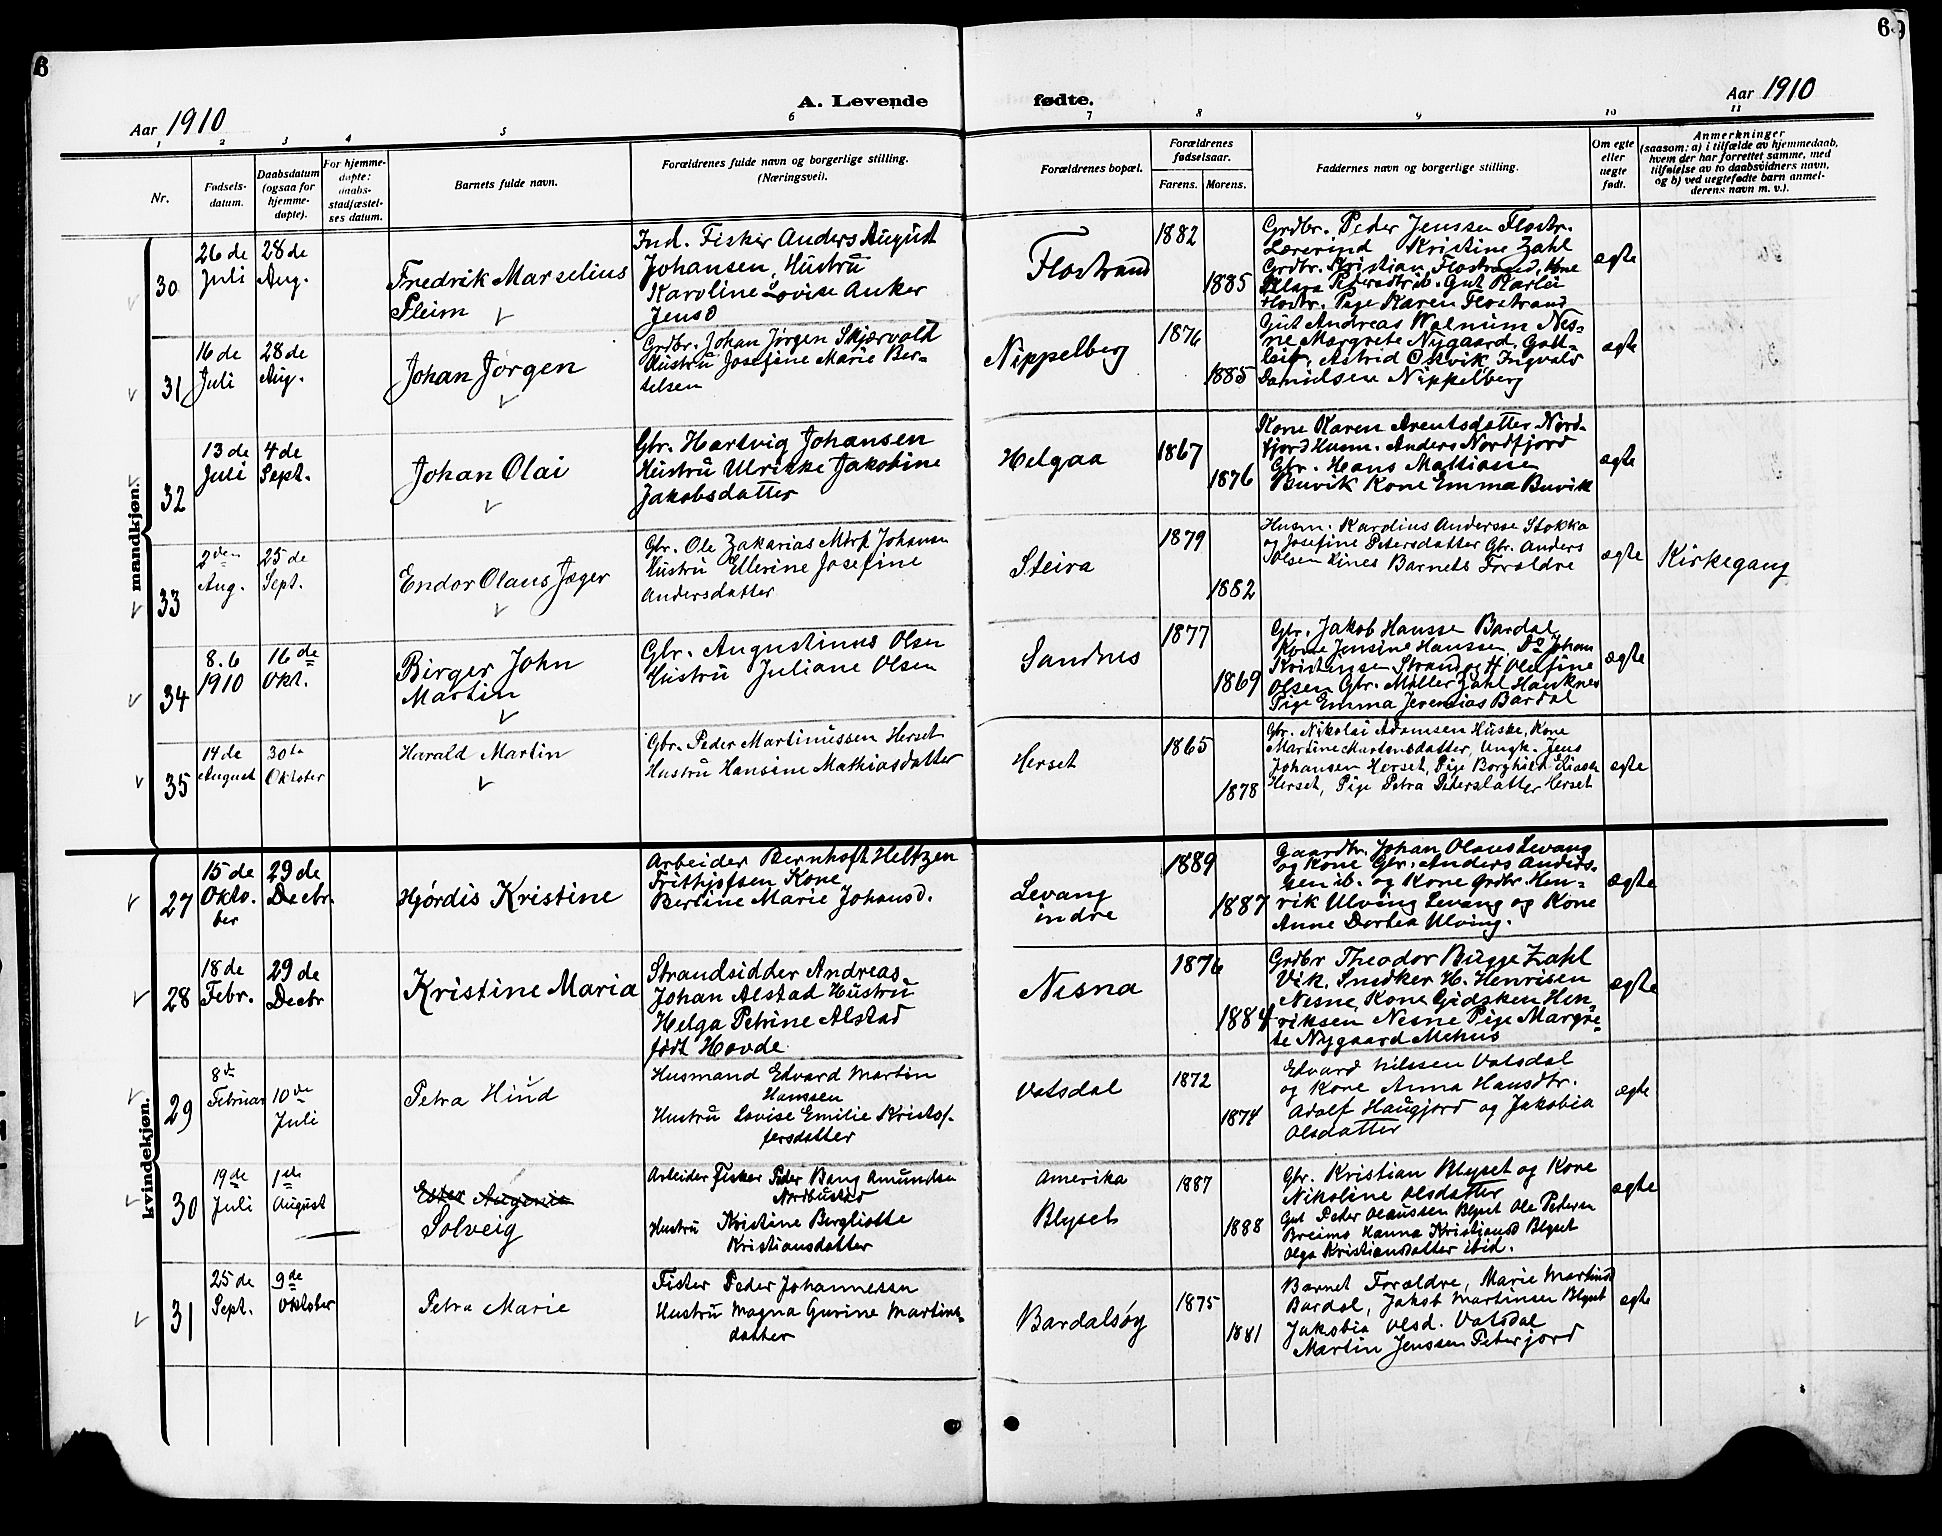 6
69
Aar 1910
A. Levende fødte.
Aar 1910
1 2 3 4 5 6 7 8 9 10 11
Nr.
Fødsels-
datum.
Daabsdatum
(ogsaa for
hjemme-
døpte).
For hjemme-
døpte:
daabs-
stadfæstel-
ses datum.
Barnets fulde navn.
Forældrenes fulde navn og borgerlige stilling.
(Næringsvei).
Forældrenes bopæl.
Forældrenes
fødselsaar.
Farens. Morens.
Faddernes navn og borgerlige stilling.
Om egte
eller
uegte
født.
Anmerkninger
(saasom: a) i tilfælde av hjemmedaab,
hvem der har forrettet samme, med
tilføielse av to daabsvidners navn,
og b) ved uegtefødte barn anmel-
derens navn m. v.).
mandkjøn.
30
26 de
Juli
28 de
Aug.
Fredrik Marselius
Pleim
Ind. Fisker Anders August
Johansen, Hustru
Karoline Lovise Anker
Jensd
Flostrand
1882
1885
Grdbr. Peder Jenssen Flostr.
Lærerind Kristine Zahl
Grdbr. Kristian Flostrand, Kone
Klara Pedersdtr ib. Gut Karlei
Flostr. Pige Karen Flostrand
ægte
31
16 de
Juli
28 de
Aug.
Johan Jørgen
Grdbr. Johan Jørgen Skjærvold
Hustru Josefine Marie Ber-
telsen
Nippelberg
1876
1885
Gut Andreas Walnum Nes-
ne Margrete Nygaard, Gott-
leif, Astrid Østvik Ingvald
Danielsen Nippelberg
ægte
32
13 de
Juli
4 de
Sept.
Johan Olai
Gbr. Hartvig Johansen
Hustru Ulrikke Jakobine
Jakobsdatter
Helgaa
1867
1876
Kone Karen Arentsdatter Nord-
fjord Husm. Anders Nordfjord
Gbr. Hans Mattiasen
Buvik Kone Emma Buvik
ægte
33
2den
Aug.
25 de
Sept.
Endor Olaus Jæger
Gbr. Ole Zakarias Mort Johansen
Hustru Ellerine Josefine
Andersdatter
Steira
1879
1882
Husm. Karolius Andersse Stokka
og Josefine Petersdatter Gbr. Anders
Olsen Hines Barnets Forældre
ægte
Kirkegang
34
8.6
1910
16 de
Okt.
Birger John
Martin
Gbr. Augustinus Olsen
Hustru Juliane Olsen
Sandnes
1877
1869
Gbr. Jakob Hanssen Bardal
Kone Jensine Hanssen, Do Johan
Kristensen Strand og H Olafine
Olsen Gbr. Møller Zahl Hauknes
Pige Emma Jeremias Bardal
ægte
35
14 de
August
30 te
Oktober
Harald Martin
Gbr. Peder Martinussen Herset
Hustru Hansine Mathiasdatter
Herset
1865
1878
Gbr. Nikolai Adamsen Husby, Kone
Martine Mortensdatter, Ungk. Jens
Johansen Herset, Pige Borghild
Herset, Pige Petra Pedersdatter Herset
ægte
kvindekjøn.
27
15 de
Okto-
ber
29 de
Decbr.
Hjørdis Kristine
Arbeider Bernhoft Heltzen
Frithjofsen Kone
Berline Marie Johansd.
Levang
indre
1889
1887
Gaardbr. Johan Olaus Levang
og Kone Gbr. Anders Anders-
sen ib. og Kone Grdbr. Hen-
rik Ulving Levang og Kone
Anne Dortea Ulving.
ægte
28
18 de
Febr.
29 de
Decbr
Kristine Maria
Strandsidder Andreas
Johan Alstad Hustru
Helga Petrine Alstad
født Hovde
Nesna
1876
1884
Grdbr Theodor Bugge Zahl
Vik, Snedker H. Henrisen
Nesne, Kone Gidsken Hen-
riksen, Nesne Pige Margre-
te Nygaard Mehus
ægte
29
8de
Februar
10de
Juli
Petra Hind
Husmand Edvard Martin
Hanssen
Hustru Lovise Emilie Kristof-
fersdatter
Vatsdal
1872
1874
Edvard Nilssen Vatsdal
og Kone Anna Hansdtr.
Adolf Haugjord og Jakobia
Olsdatter
ægte
30
19de
Juli
1ste
August
Ester Augenie
Solveig
Arbeider Fisker Peder Bang Amundsen
Nordbusted
Hustru Kristine Bergliotte
Kristiansdatter
Amerika
Blyset
1887
1888
Gbr. Kristian Blyset og Kone
Nikoline Olsdatter
Gut Peder Olaussen Blyset Ole Petersen
Breimo Hanna Kristiansd Blyset
Olga Kristiansdatter ibid.
ægte
31
25 de
Sept.
9de
Oktober
Petra Marie
Fisker Peder Johannessen
Hustru Magna Gurine Martins-
datter
Bardalsøy
1875
1881
Barnet Forældre, Marie Martinsd
Bardal, Jakob Martinsen Blyset
Jakobia Olsd. Vatsdal
Martin Jenssen Peterjord
ægte